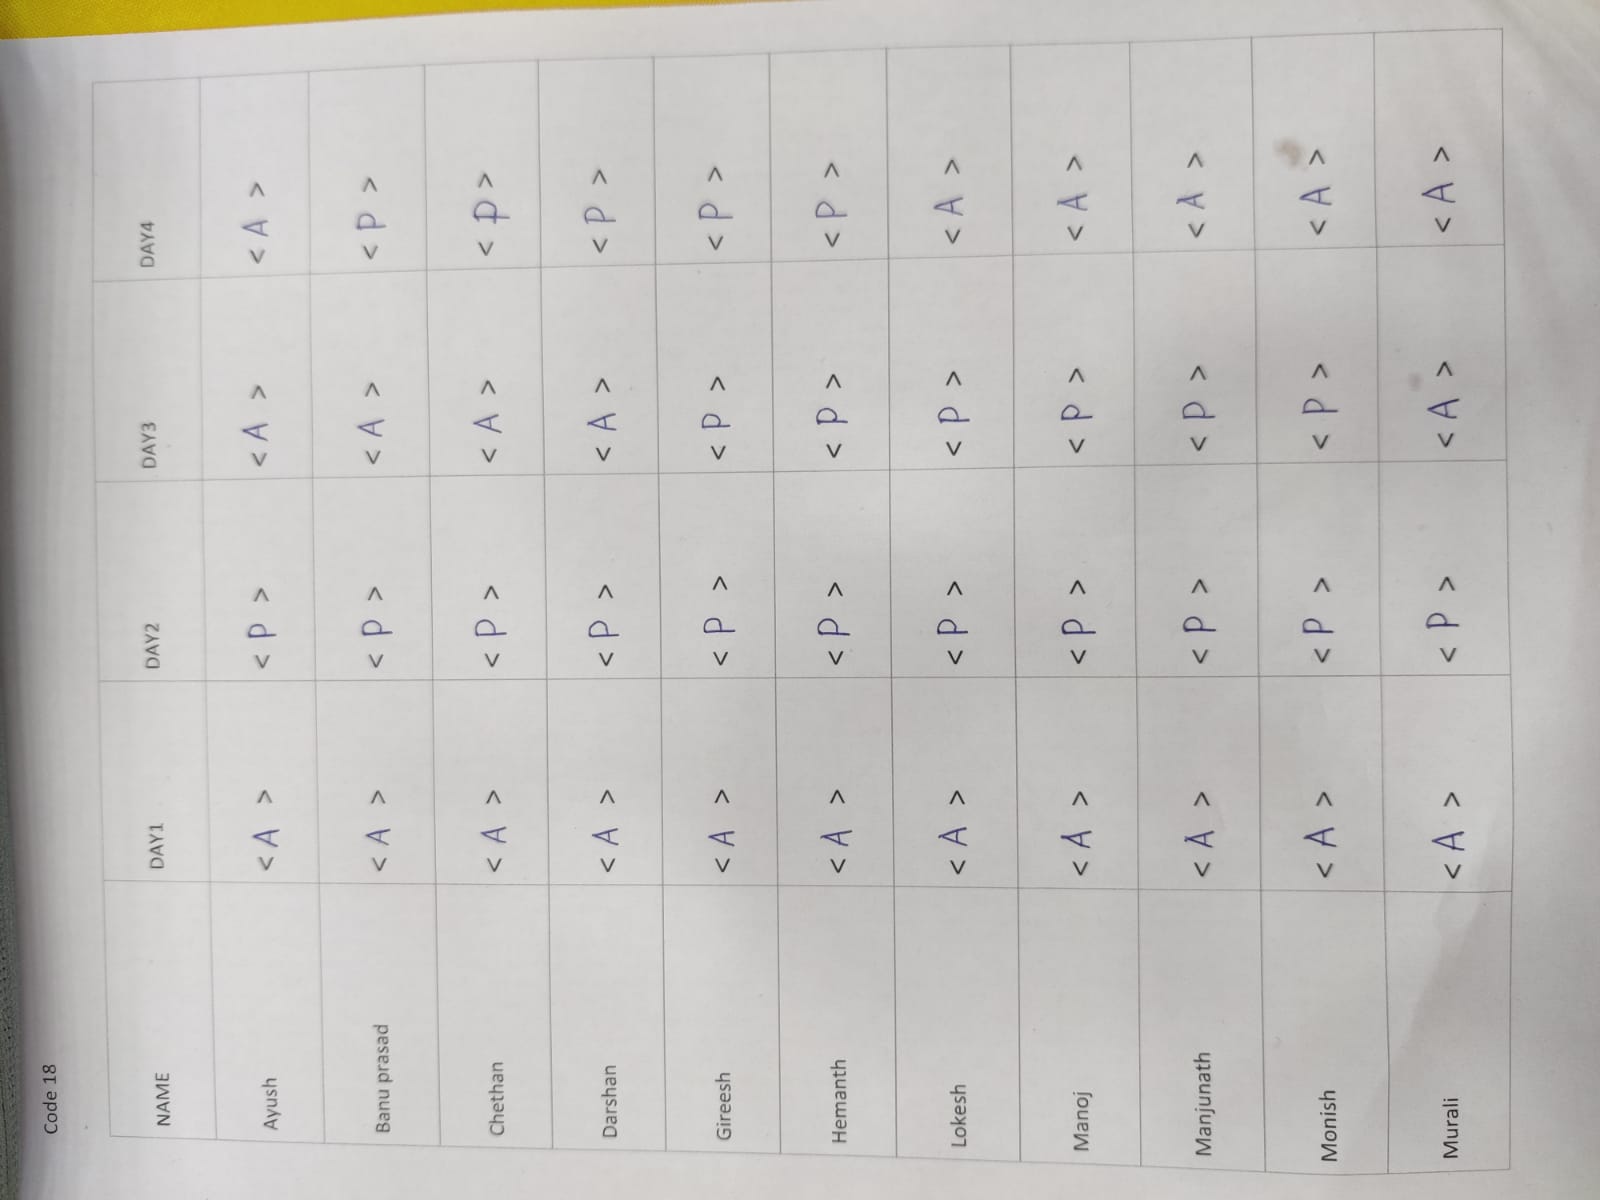 Code 18
NAME DAY1 DAY2 DAY3 DAY4
Ayush < A > < P > < A > < A >
Banu prasad < A > < P > < A > < P >
Chethan < A > < P > < A > < P >
Darshan < A > < P > < A > < P >
Gireesh < A > < P > < P > < P >
Hemanth < A > < P > < P > < P >
Lokesh < A > < P > < P > < A >
Manoj < A > < P > < P > < A >
Manjunath < A > < P > < P > < A >
Monish < A > < P > < P > < A >
Murali < A > < P > < A > < A >